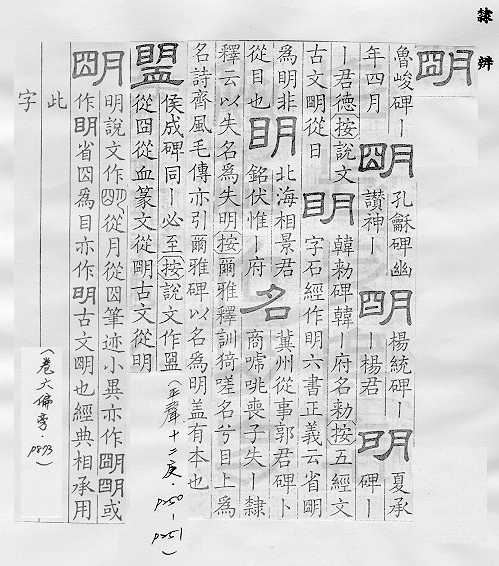 隸辨
朙
魯峻碑丨
年四月
朙
孔龢碑幽
讚神丨
明
楊統碑丨
楊君
明
夏承
碑丨
丨君德按說文
古文朙從日
明
韓勑碑韓丨府名勑按五經文
字石經作明六書正義云省朙
為明非
從目也
明
北海相景君
銘伏惟丨府
名
冀州從事郭君碑卜
商嚅咷喪子失丨隸
釋云以失名為失明按爾雅釋訓猗嗟名兮目上為
名詩齊風毛傳亦引爾雅碑以名為明蓋有本也
盟
侯成碑同丨必至按說文作盟
從囧從血篆文從朙古文從明
(平聲十二庚．p250-p251)
朙
明說文作朙從月從囧筆迹小異亦作朙明或
作明省囧為目亦作明古文明也經典相承用
此字
(卷六偏旁．p893)